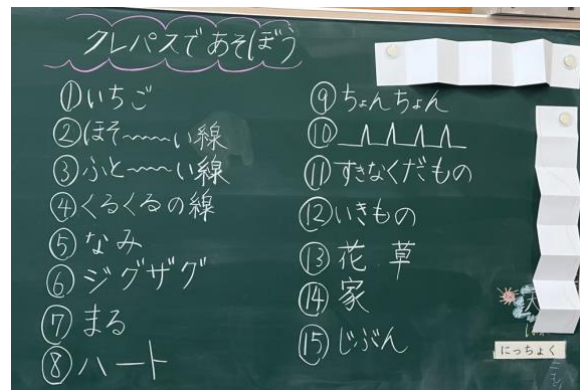 クレパスであそぼう
①いちご
②ほそ〜〜〜い線
③ふと〜〜〜い線
④くるくるの線
⑤なみ
⑥ジグザグ
⑦まる
⑧ハート
⑨ちょんちょん
⑩
⑪すきなくだもの
⑫いきもの
⑬花 草
⑭家
⑮じぶん
にっちょく